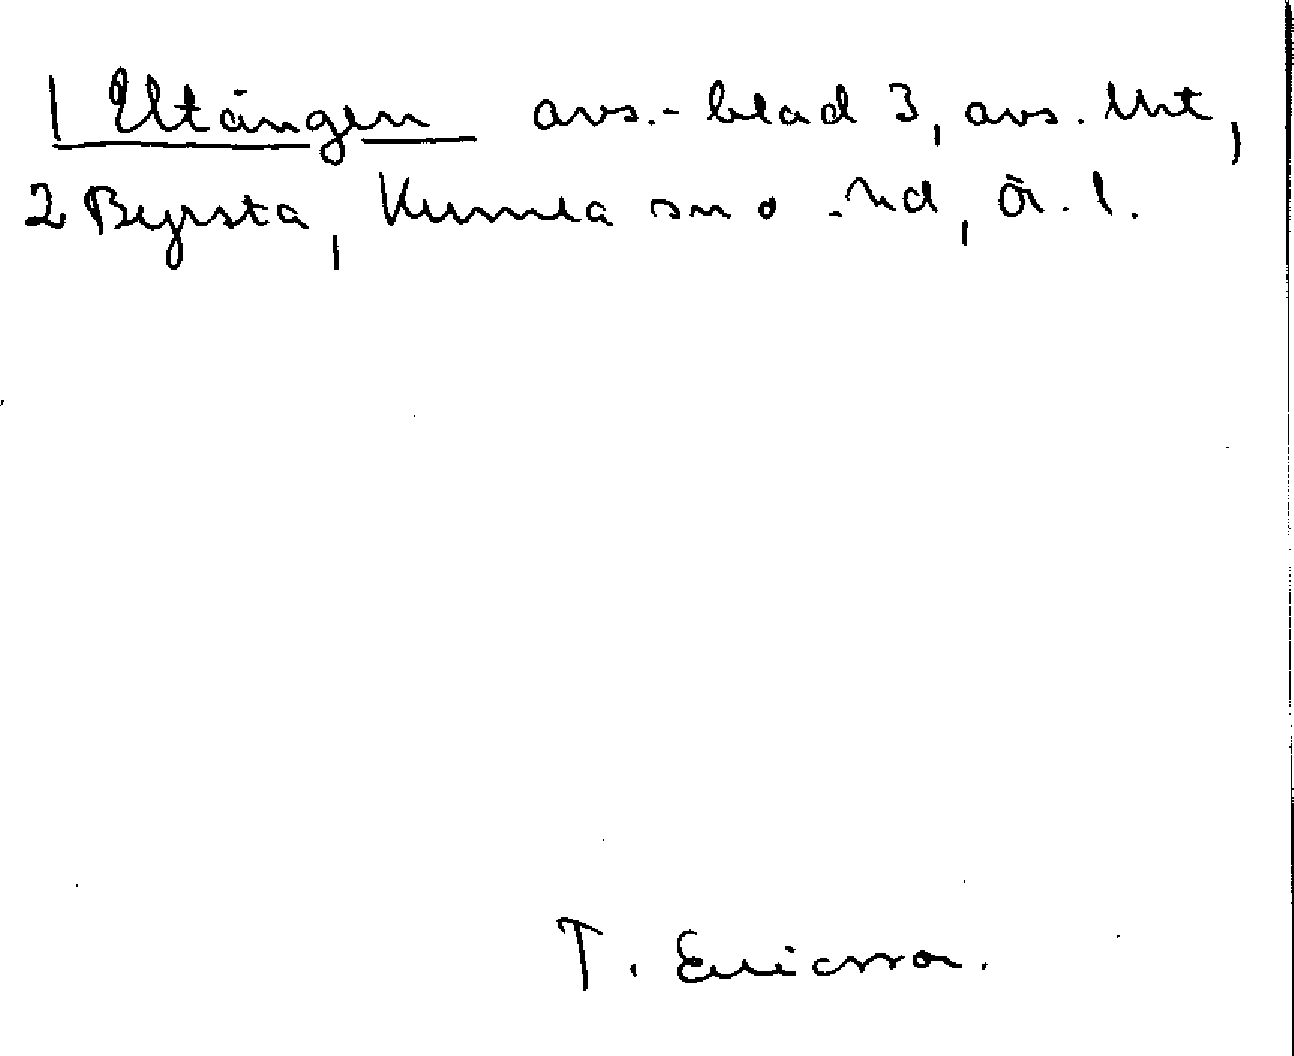 1 Eltängen avs.-blad 3, avs. Unt,
2 Byrsta, Kumla sn o -hd, Ör. l.
T. Ericsson.